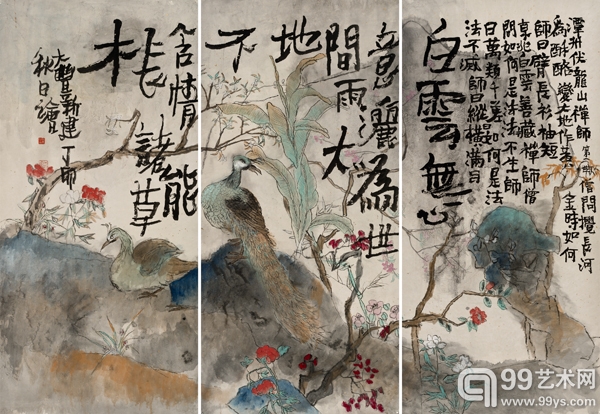 潭州伏龍山禅師第一世僧問攪長河
為酥酪變大地作黃金時如何
師曰臂長衫袖短
京兆白雲善藏禅師僧
問如何是法法不生師
曰萬類千差如何是法
法不滅師曰縱橫滿目
白雲無心
意灑為世
間雨大
地
不
含情能
長諸草
木
大豐新建丁亥
秋日繪
99艺术网
www.99ys.com